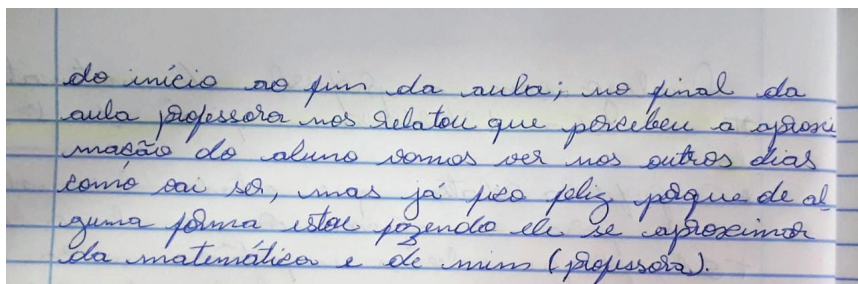 do início ao fim da aula; no final da
aula professora nos relatou que percebeu a aproxi
mação do aluno vamos ver nos outros dias
como vai ser, mas já fico feliz porque de al
guma forma estou fazendo ele se aproximar
da matemática e de mim (professora).